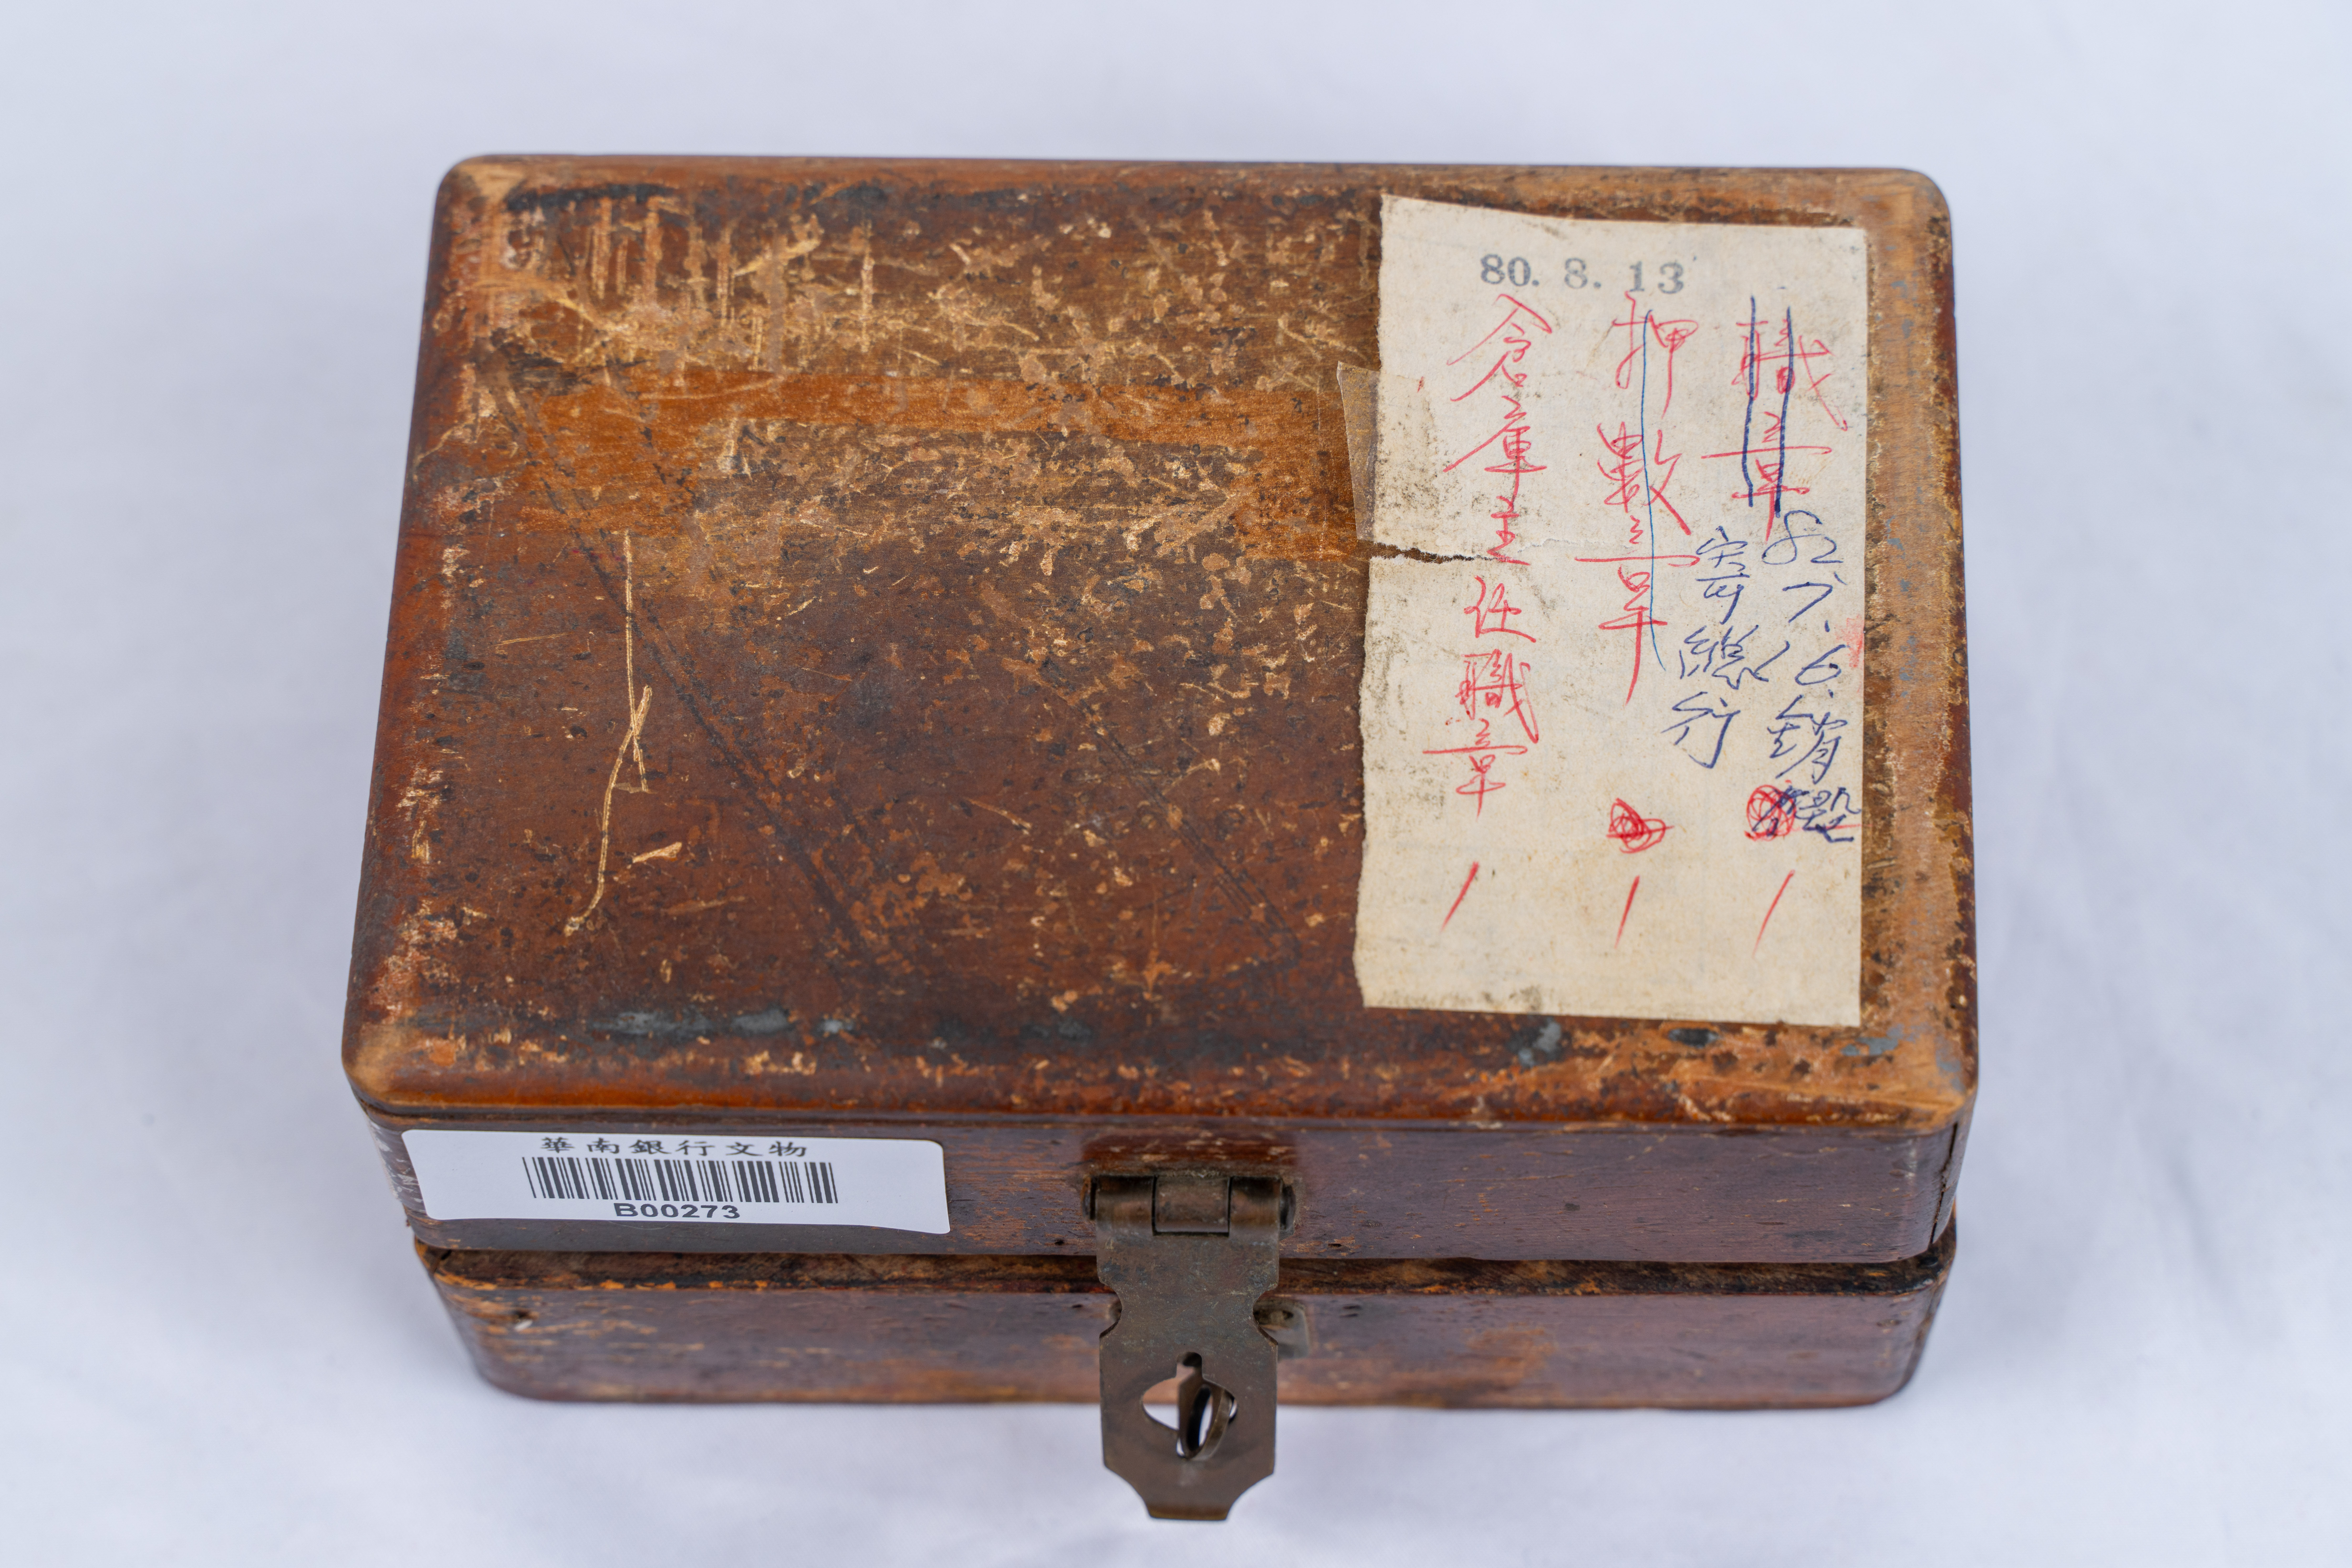 80. 8. 13
職章
82.7.6.銷毀
寄總行
1
押數章
1
倉庫主任職章
1
華南銀行文物
B00273